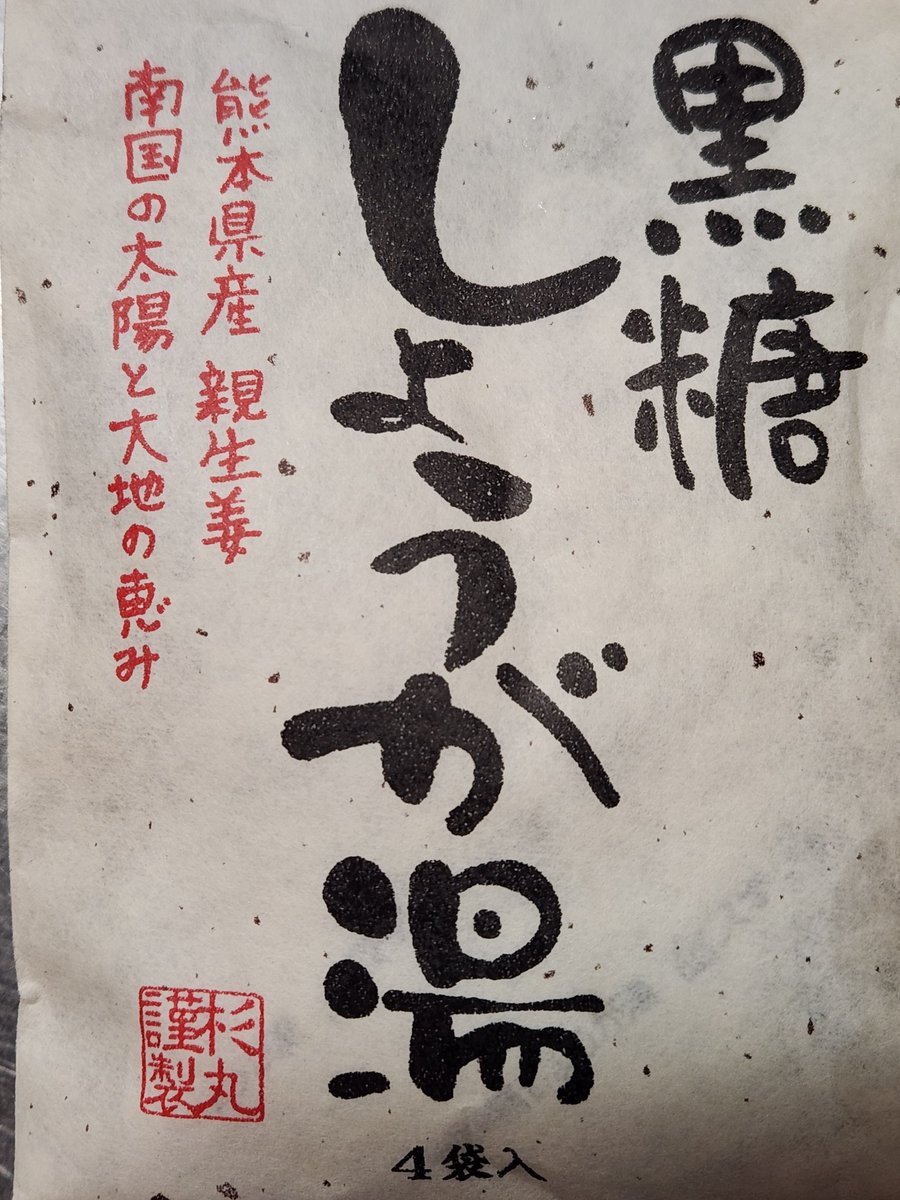 黒糖
しょうが湯
熊本県産 親生姜
南国の太陽と大地の恵み
杉丸
謹製
4袋入